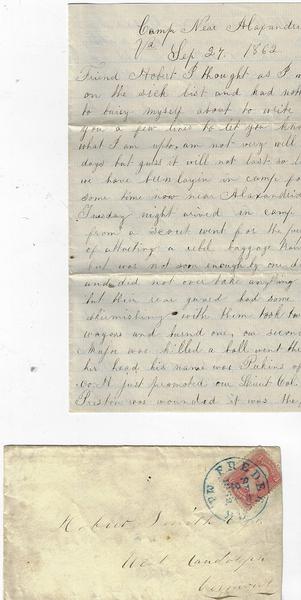 Camp Near Alaxandria
Va Sep 27. 1862
Friend Hobert I thought as I w
on the sick list and had noth
to buisy myself about to write
you a few lines to let you know
what I am upto, am not very well
days but guess it will not last so l
we have been layen in camp fo
some time now near Alaxandria
Tuesday night arived in camp
from a Scout went for the pur
of attacting a rebl baggage train
but was not soon enough by one d
and did not over take anything
but their rear guard had some
skirmishing with them took two
wagons and burned one, our second
Major was killed a ball went thr
his head his name was Perkins of
Co. H just promoted our Lieut Col.
Preston was wounded it was the
FREDE
Hobert
West Randolph
Vermont